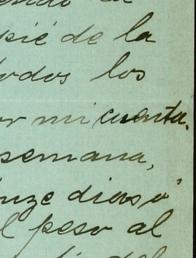 pié de la
todos los
or mi cuenta.
semana,
inze dias o
el peso al